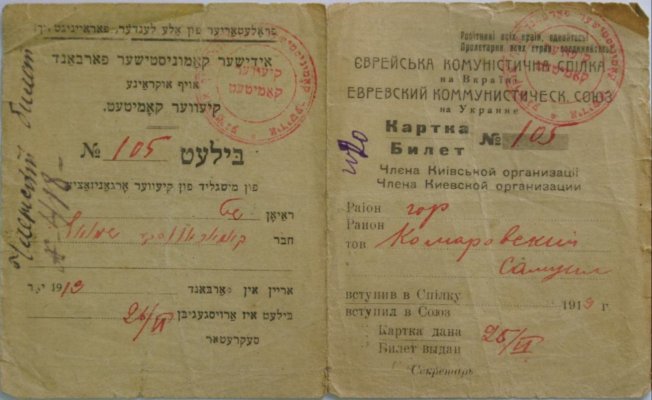 פּראָלעטאַריער פון אַלע לענדער, פאַראייניגט זיך!
אידישער קאָמוניסטישער פאַרבאַנד
אויף אוקראַינע
קיעווער קאָמיטעט.
בילעט № 105
פון מיטגליד פון קיעווער אָרגאַניזאַציע
ראַיאָן שט
חבר
אריין אין פאַרבאַנד 1919 יאָר
בילעט איז אַרויסגעגעבן 26/VI
סעקרעטאַר
קיעווער
קאָמיטעט
Членский билет
Робітники всіх країн, єднайтесь!
Пролетарии всех стран, соединяйтесь!
ЄВРЕЙСЬКА КОМУНІСТИЧНА СПІЛКА
на Вкраїні
ЕВРЕЙСКИЙ КОММУНИСТИЧЕСК. СОЮЗ
на Украине
קיעווער
קאָמיטעט
Картка
Билет № 105
Члена Київської організації
Члена Киевской организации
Раіон гор
Раион
тов Комаровский
Самуил
вступив в Спілку
вступил в Союз 1919 г
Картка дана
Билет выдан 25/VI
Секретарь